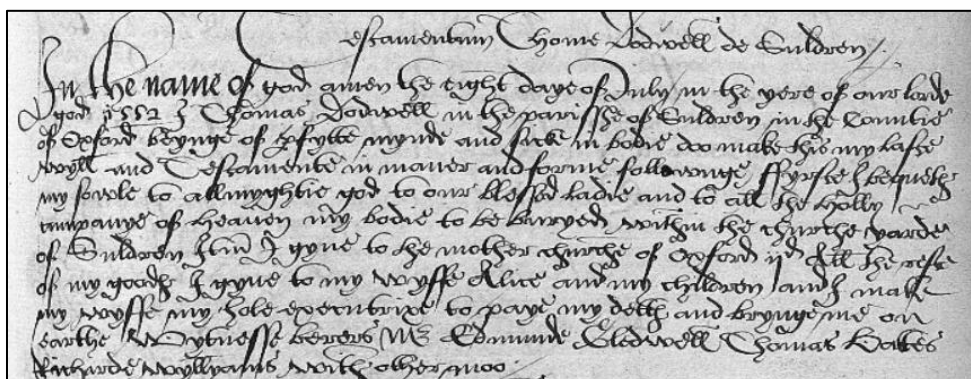 Testamentum Thome Dodwell de Suldren
In the name of god amen the eight daye of July in the yere of our lorde
god 1552 I Thomas Dodwell in the parisshe of Suldren in the Countie
of Oxford beynge of pfytte mynde and sick in bodie doo make this my laste
wyll and Testamente in maner and forme followinge ffyrste I bequeth
my sowle to allmyghtie god to our blessed ladie and to all the holly
companye of heaven my bodie to be buryed within the churche yarde
of Suldren Itm I gyve to the mother churche of Oxford ijd All the reste
of my goodes I gyve to my wyffe Alice and my children and I make
my wyffe my hole executrixe to paye my detts and brynge me on
earthe Wytnesse berers Mr Edmunde Bledwell Thomas Bates
Richarde Wyllyams with other moo